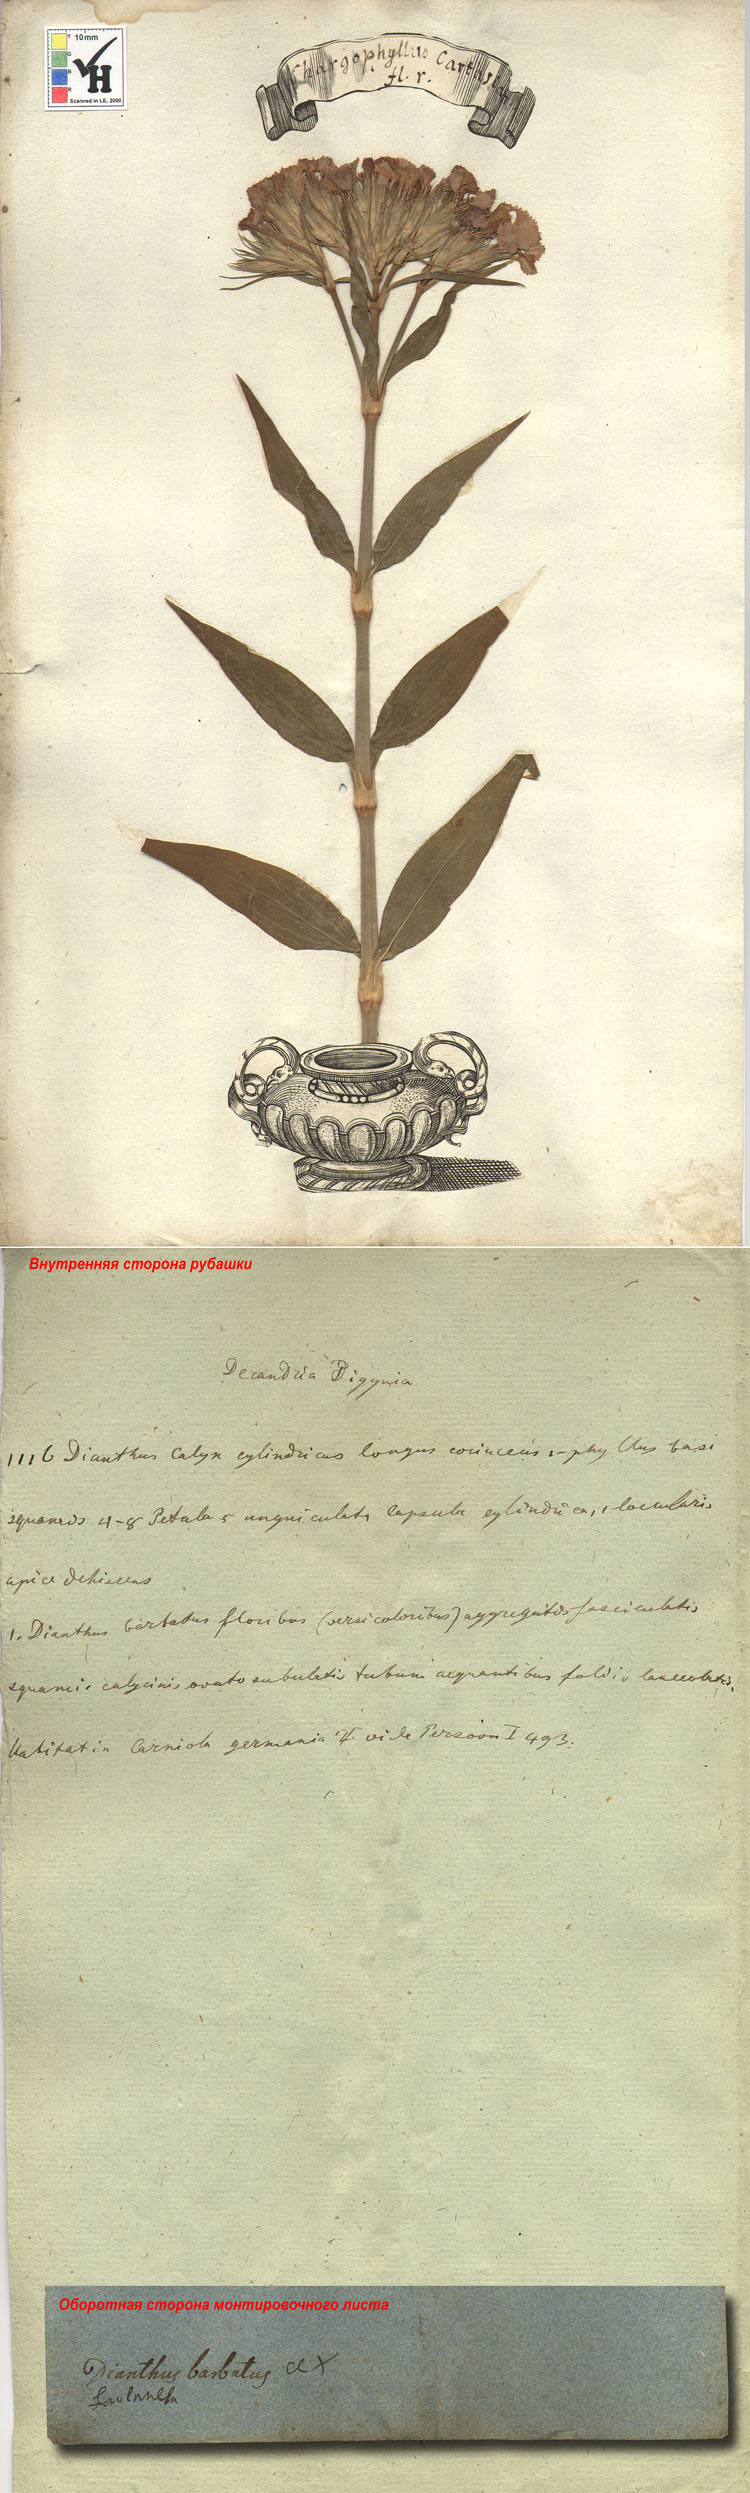 10mm
Y
G
B
R
H
Scanned in LE, 2000
Chargophyllus Carthus
fl. r.
Внутренняя сторона рубашки
Decandria Digynia
1116 Dianthus Calyx cylindricus longus coriaceus 1-phyllus basi
squamis 4-8 Petala 5 unguiculata Capsula cylindrica, 1 locularis
apice dehiscens
1. Dianthus barbatus floribus (versicoloribus) aggregatis fasciculatis
squamis calycinis ovato subulatis tubum aequantibus foliis lanceolatis.
Habitat in Carniola germania ♃ vide Persoon I 493.
Оборотная сторона монтировочного листа
Dianthus barbatus